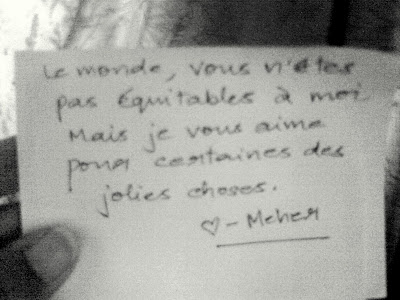 Le monde, vous n'êtes
pas équitables à moi
Mais je vous aime
pour certaines des
jolies choses.
♡ - Meher